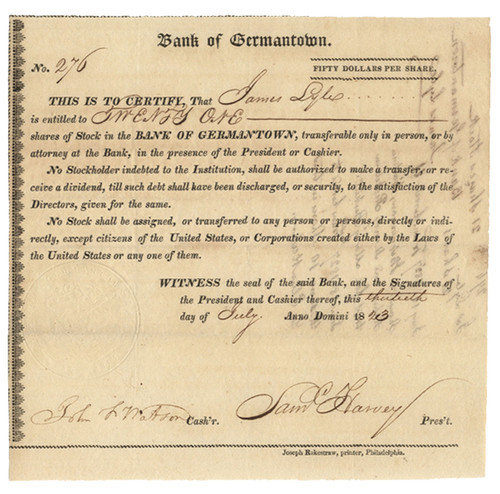 Bank of Germantown.
No. 276
FIFTY DOLLARS PER SHARE.
THIS IS TO CERTIFY, That James Lyle
is entitled to TWENTY ONE
shares of Stock in the BANK OF GERMANTOWN, transferable only in person, or by
attorney at the Bank, in the presence of the President or Cashier.
No Stockholder indebted to the Institution, shall be authorized to make a transfer, or re-
ceive a dividend, till such debt shall have been discharged, or security, to the satisfaction of the
Directors, given for the same.
No Stock shall be assigned, or transferred to any person or persons, directly or indi-
rectly, except citizens of the United States, or Corporations created either by the Laws of
the United States or any one of them.
WITNESS the seal of the said Bank, and the Signatures of
the President and Cashier thereof, this thirtieth
day of July. Anno Domini 1823
John F Watson Cash'r. Saml Harvey Pres't.
Joseph Rakestraw, printer, Philadelphia.